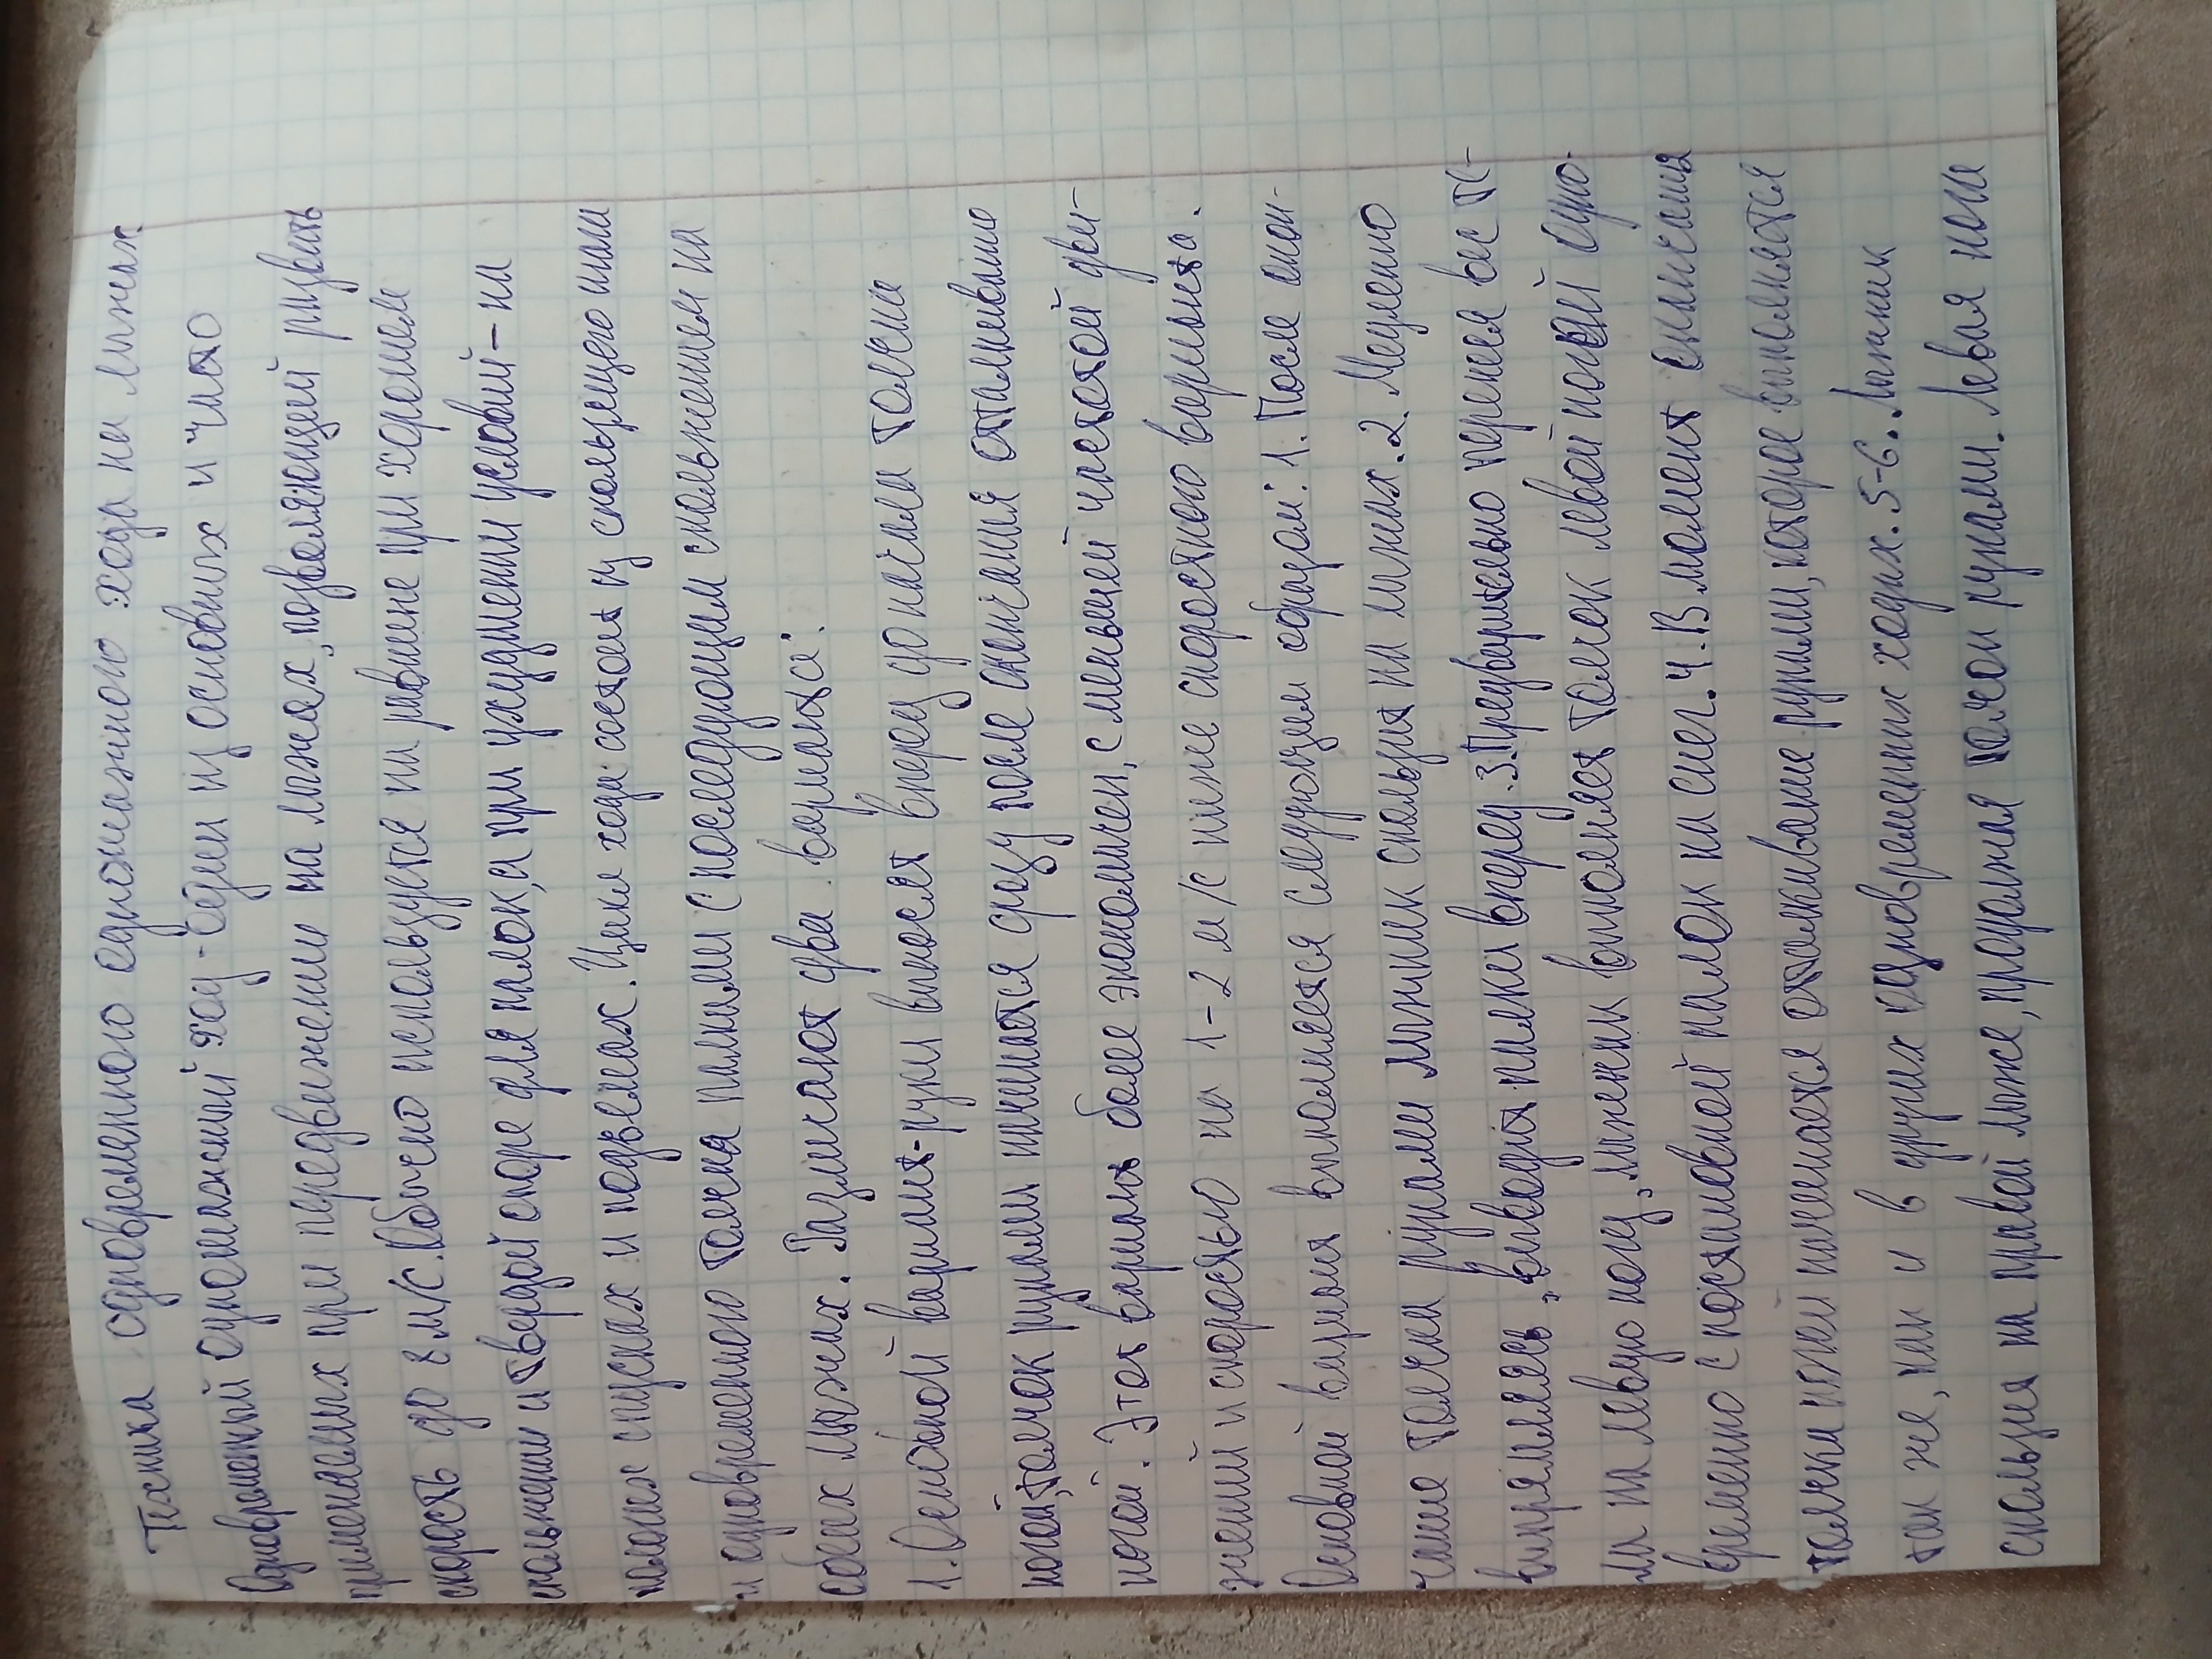 Техника одновременного одношажного хода на лыжах.
Одновременный одношажный ход - один из основных и часто
применяемых при передвижении на лыжах, позволяющей развивать
скорость до 8 м/с. Обычно используется на равнине при хорошем
скольжении и твердой опоре для палок, а при ухудшении условий - на
пологих спусках и подъемах. Цикл хода состоит из скользящего шага
и одновременного толчка палками с последующим скольжением на
обеих лыжах. Различают два варианта:
1. Основной вариант - руки выносят вперед до начала толчка
ногой, толчок руками начинается сразу после окончания отталкивания
ногой. Этот вариант более экономичен, с меньшей частотой дви-
жений и скоростью на 1-2 м/с ниже скоростного варианта.
Основной вариант выполняется следующем образом: 1. После окон-
чание толчка руками лыжник скользит на лыжах. 2. Медленно
выпрямляясь, выводит палки вперед. 3. Предварительно перенеся вес те-
ла на левую ногу, лыжник выполняет толчок левой ногой одно-
временно с постановкой палок на снег. 4. В момент окончания
толчка ногой начинается отталкивание руками, которое выполняется
так же, как и в других одновременных ходах. 5-6. Лыжник
скользит на правой лыже, продолжая толчок руками. Левая нога